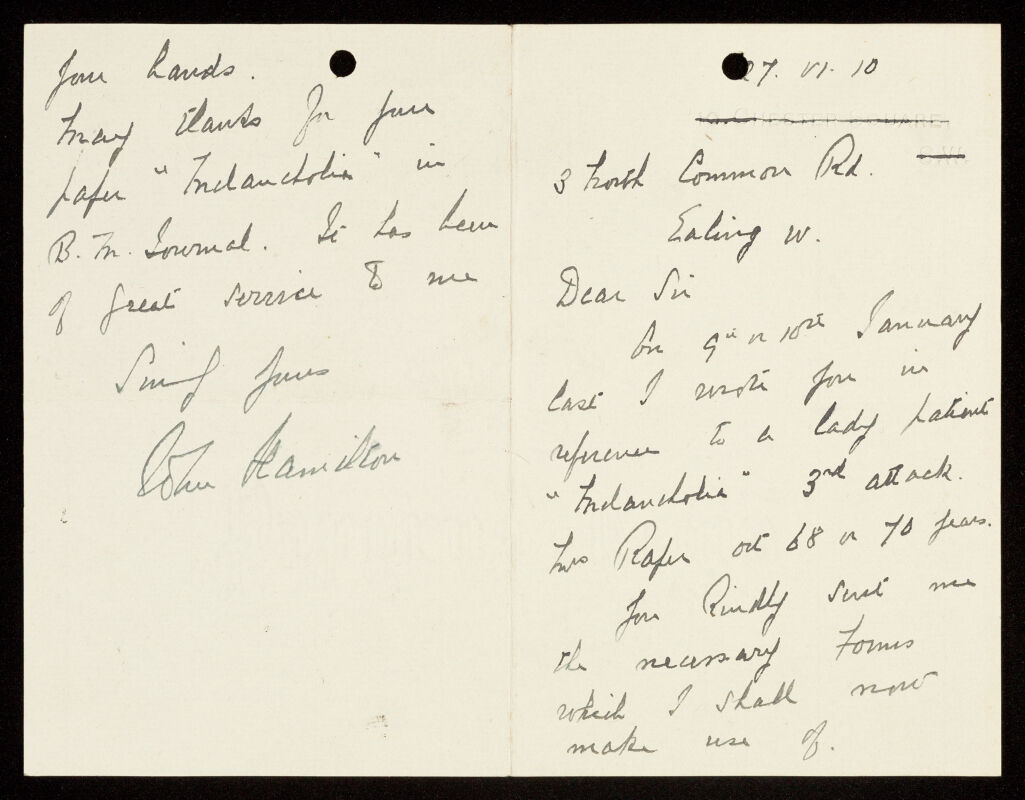 27. VI. 10
SQUARE,
S.W.
3 North Common Rd.
Ealing W.
Dear Sir
On 9th or 10th January
last I wrote you in
reference to a lady patient
"Melancholia" 3rd attack.
Mrs Raper aet 68 or 70 years.
You kindly sent me
the necessary Forms
which I shall now
make use of.
your hands.
Many thanks for your
paper "Melancholia" in
B. M. Journal. It has been
of great service to me
Sincly yours
John Hamilton